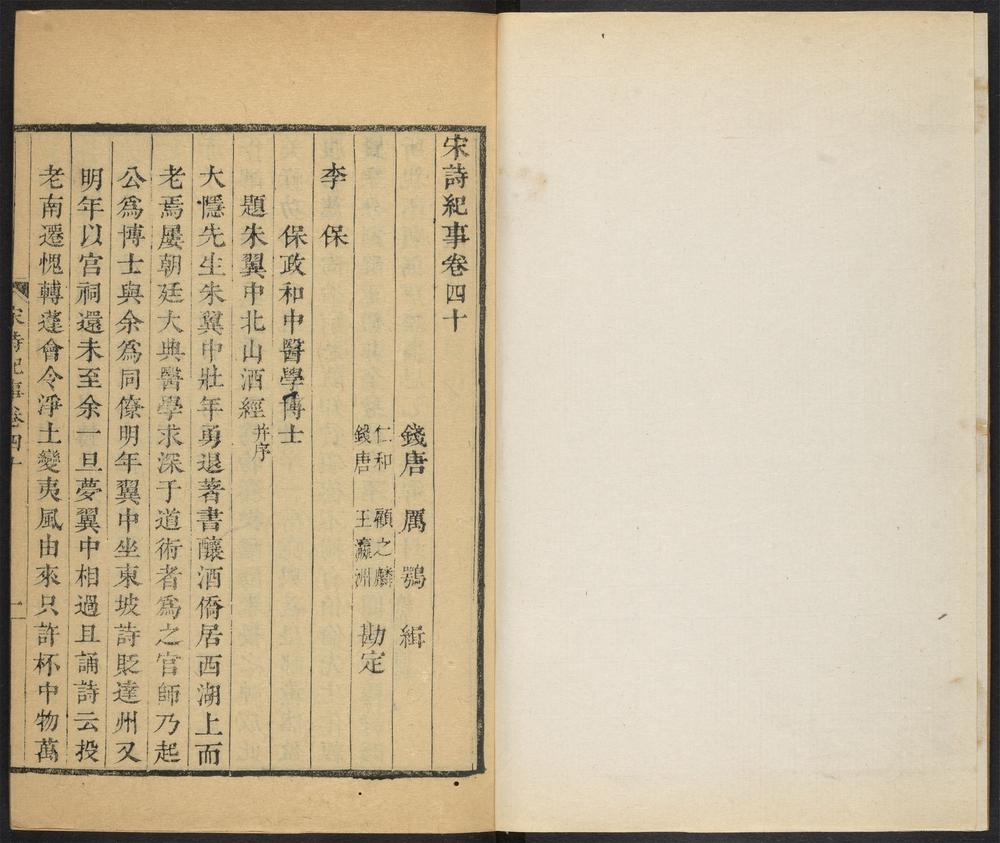 宋詩紀事卷四十
錢唐 厲鶚 緝
仁和 顧之麟
錢唐 王瀛洲 勘定
李保
保政和中醫學博士
題朱翼中北山酒經并序
大隱先生朱翼中壯年勇退著書釀酒僑居西湖上而
老焉屢朝廷大典醫學求深于道術者爲之官師乃起
公爲博士與余爲同僚明年翼中坐東坡詩貶達州又
明年以宮祠還未至余一旦夢翼中相過且誦詩云投
老南遷愧轉蓬會令淨土變夷風由來只許杯中物萬
宋詩紀事卷四十 一